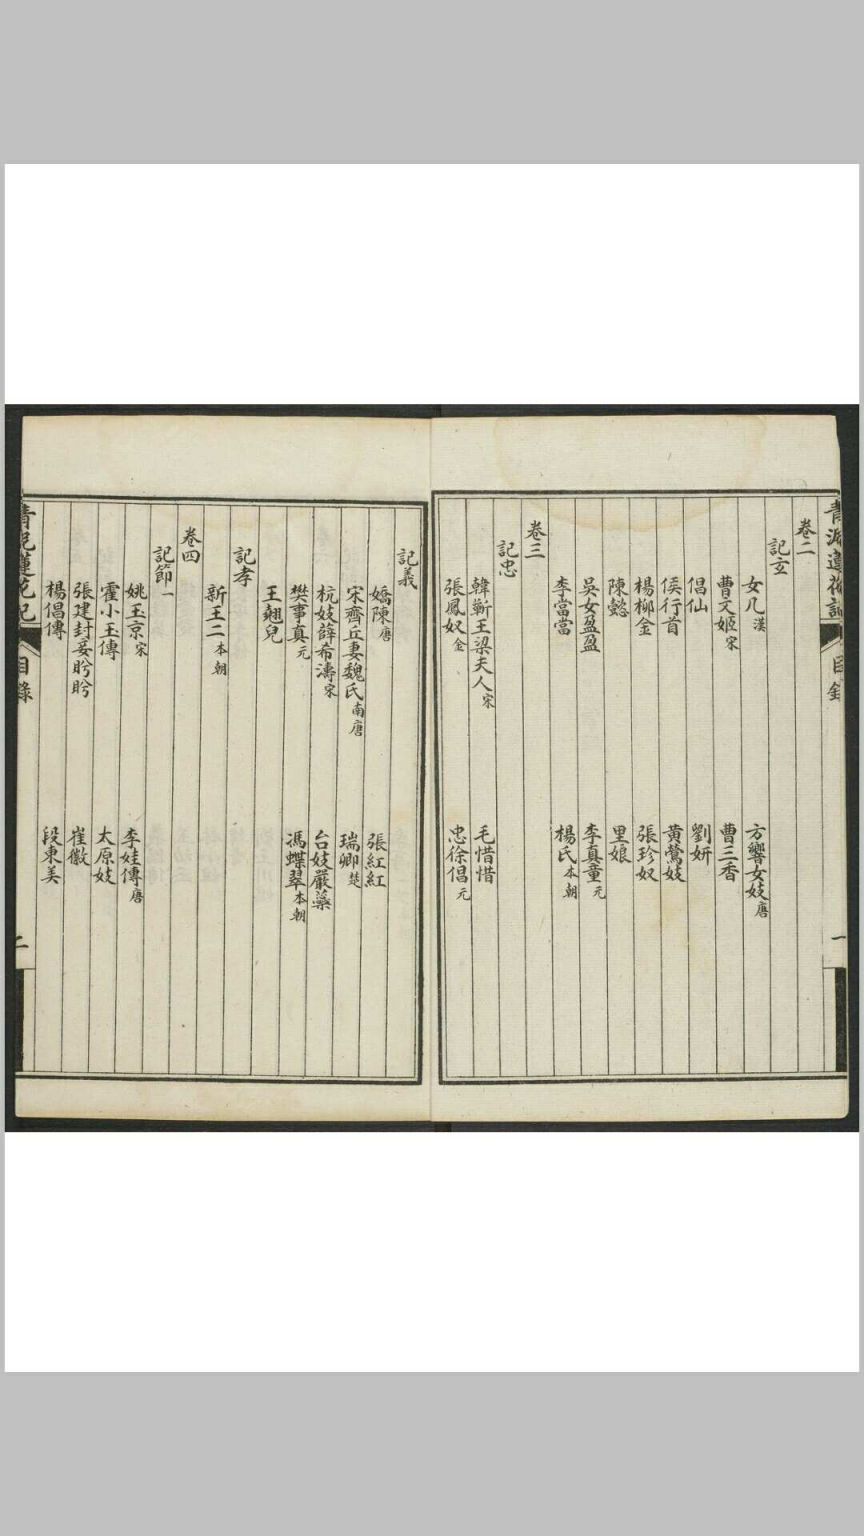 青泥蓮花記 目錄 一
卷二
記玄
女几漢 方響女妓唐
曹文姬宋 曹三香
倡仙 劉妍
侯行首 黃鶯妓
楊柳金 張珍奴
陳懿 里娘
吳女盈盈 李真童元
李當當 楊氏本朝
卷三
記忠
韓蘄王梁夫人宋 毛惜惜
張鳳奴金 忠徐倡元
記義
嬌陳唐 張紅紅
宋齊丘妻魏氏南唐 瑞卿楚
杭妓薛希濤宋 台妓嚴蘂
樊事真元 馮蝶翠本朝
王翹兒
記孝
新王二本朝
卷四
記節一
姚玉京宋 李娃傳唐
霍小玉傳 太原妓
張建封妾盻盻 崔徽
楊倡傳 段東美
青泥蓮花記 目錄 二